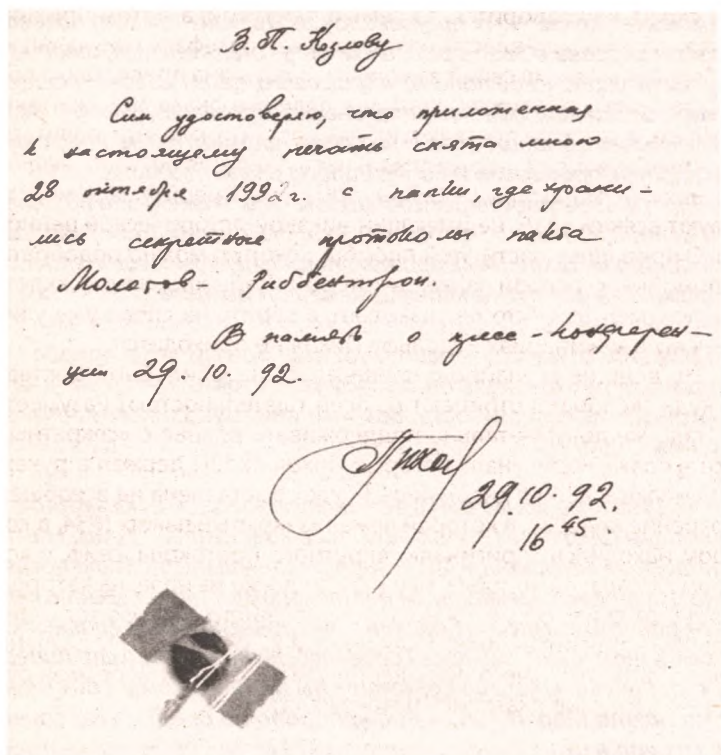 В. П. Козлову
Сим удостоверяю, что приложенная
к настоящему печать снята мною
28 октября 1992г. с папки, где храни-
лись секретные протоколы пакта
Молотов - Риббентроп.
В память о пресс-конферен-
ции 29.10.92.
29.10.92.
16 45.